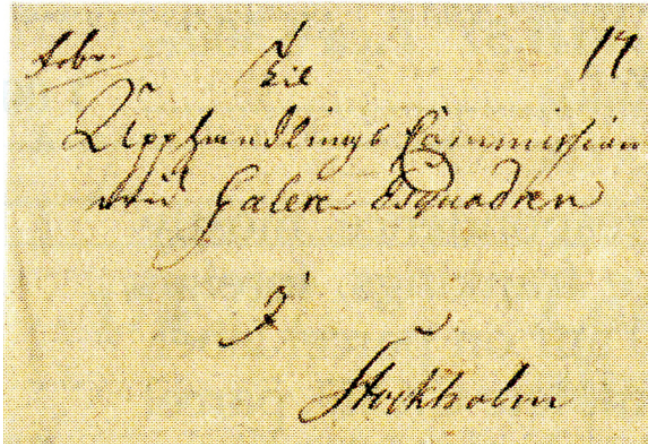 frbr. Til 17
Upphandlings Commission
wid Galere Esquadren
I
Stockholm